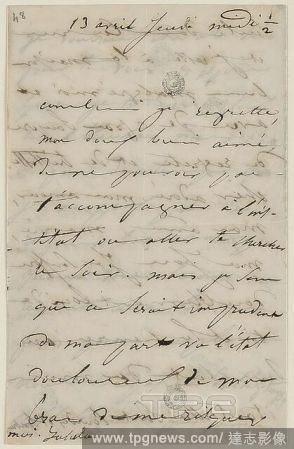 48
13 avril Jeudi midi 1/2
combien je regrette,
mon doux bien aimé,
de ne pouvoir pas
t'accompagner à l'ins-
titut ou aller te chercher
ce soir. mais je sens
que ce serait imprudent
de ma part vu l'état
douloureux de mon
bras de me risquer
moi. Juliette
TPG
www.tpgnews.com / 達志影像